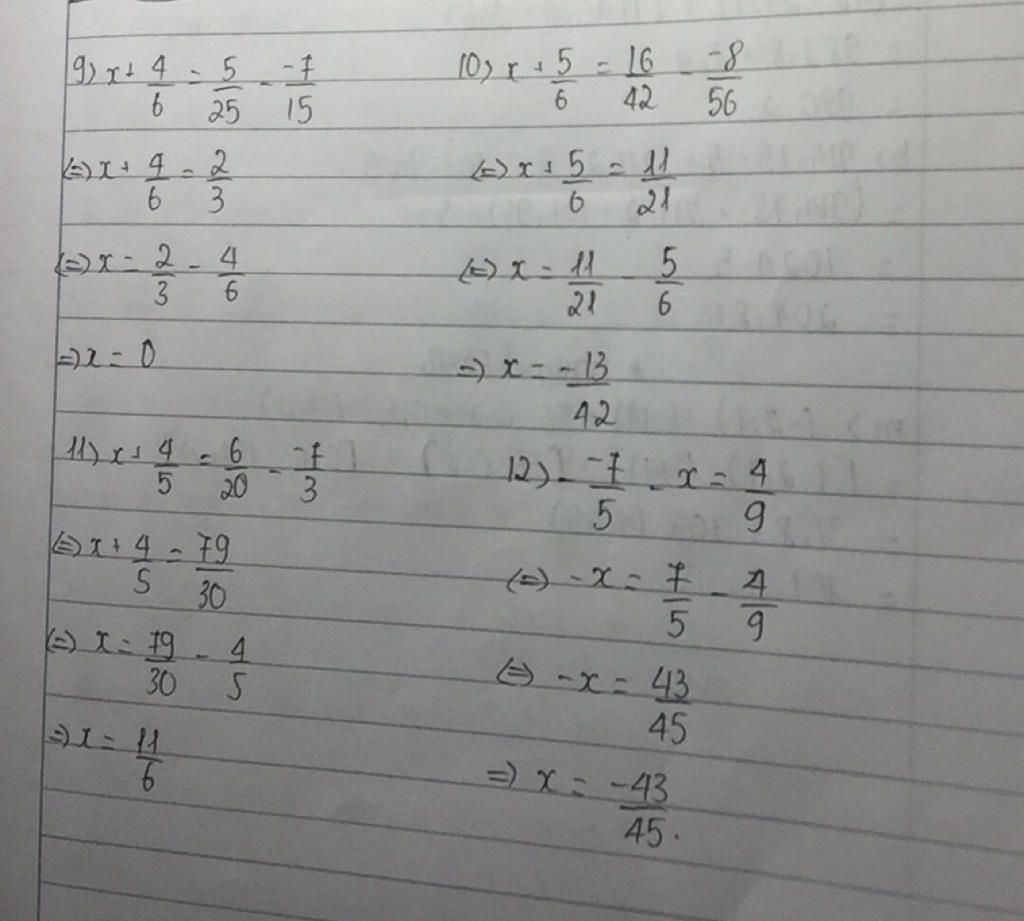 9) x + 4/6 = 5/25 - -7/15
(=) x + 4/6 = 2/3
(=) x = 2/3 - 4/6
=) x = 0
10) x + 5/6 = 16/42 - -8/56
(=) x + 5/6 = 11/21
(=) x = 11/21 - 5/6
=) x = -13/42
11) x + 4/5 = 6/20 - -7/3
(=) x + 4/5 = 79/30
(=) x = 79/30 - 4/5
=) x = 11/6
12) - -7/5 - x = 4/9
(=) -x = 7/5 - 4/9
(=) -x = 43/45
=) x = -43/45.